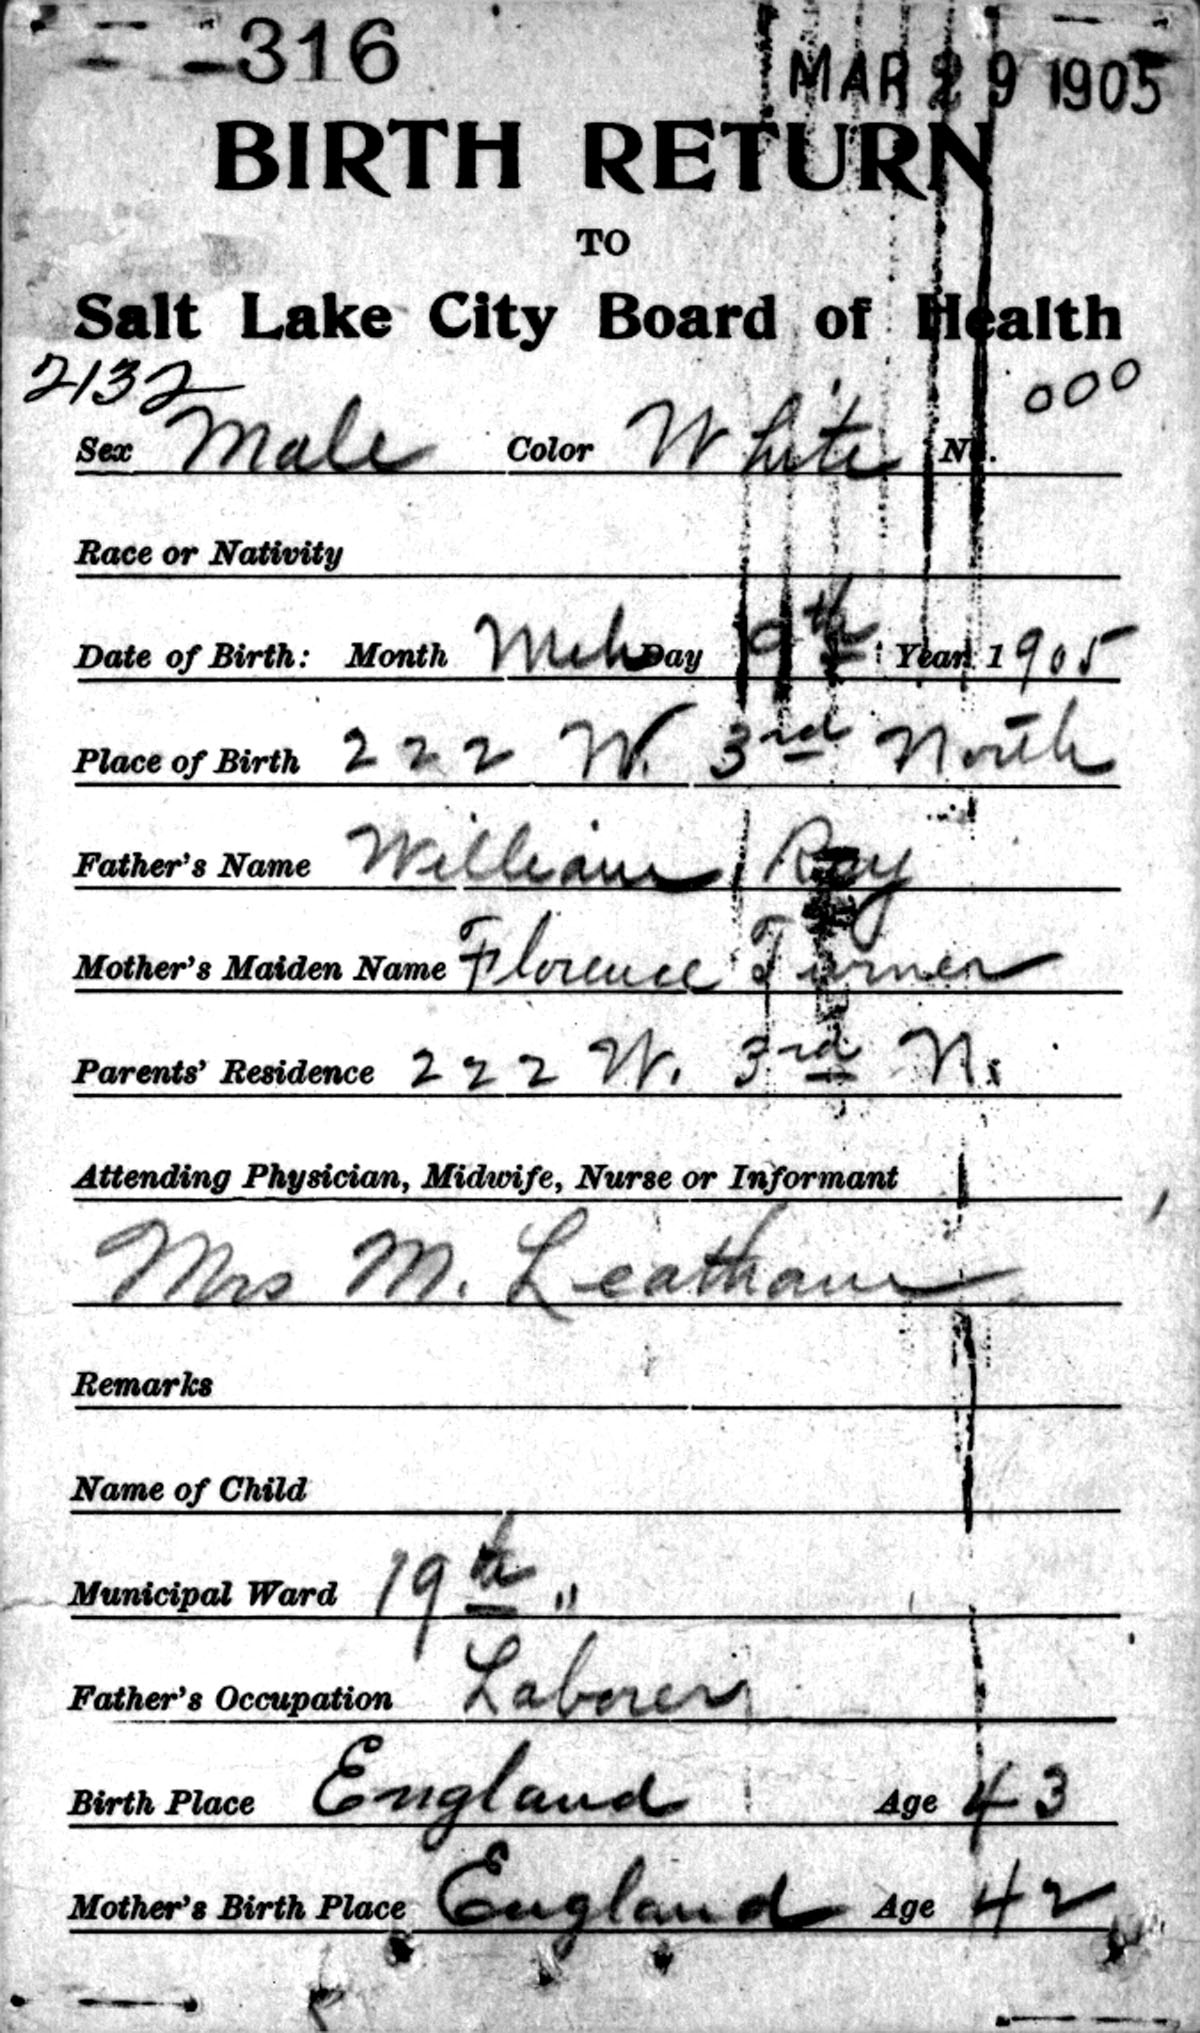 316 MAR 29 1905
BIRTH RETURN
TO
Salt Lake City Board of Health
2132 000
Sex Male Color White No.
Race or Nativity
Date of Birth: Month Mch Day 9th Year 1905
Place of Birth 222 W. 3rd North
Father's Name William Ray
Mother's Maiden Name Florence Turner
Parents' Residence 222 W. 3rd N.
Attending Physician, Midwife, Nurse or Informant
Mrs M. Leatham
Remarks
Name of Child
Municipal Ward 19th "
Father's Occupation Laborer
Birth Place England Age 43
Mother's Birth Place England Age 42